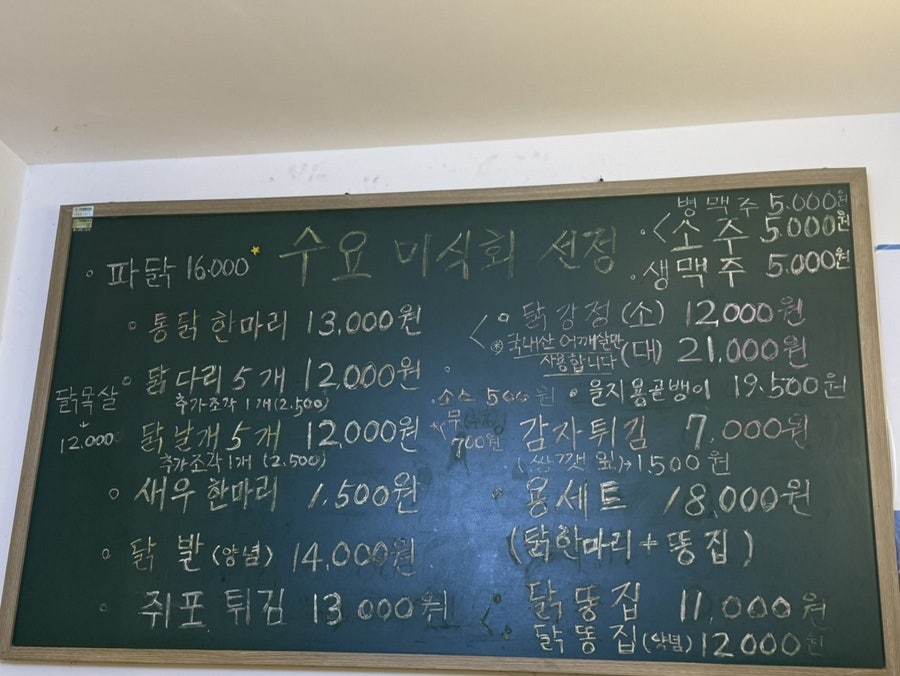 수요 미식회 선정
병맥주 5.000원
소주 5.000원
생맥주 5.000원
파닭 16.000
통닭 한마리 13,000원
닭다리 5개 12,000원
추가조각 1개 (2,500)
닭목살
12,000
닭날개 5개 12,000원
추가조각 1개 (2,500)
새우 한마리 1,500원
닭발 (양념) 14,000원
쥐포 튀김 13 000원
닭강정 (소) 12,000원
국내산 어깨살만
사용합니다 (대) 21,000원
소스 500원
을지용골뱅이 19.500원
무
700원
감자튀김 7,000원
1500원
용세트 18,000원
(닭한마리 + 똥집)
닭똥집 11,000원
닭똥집 (양념) 12000원